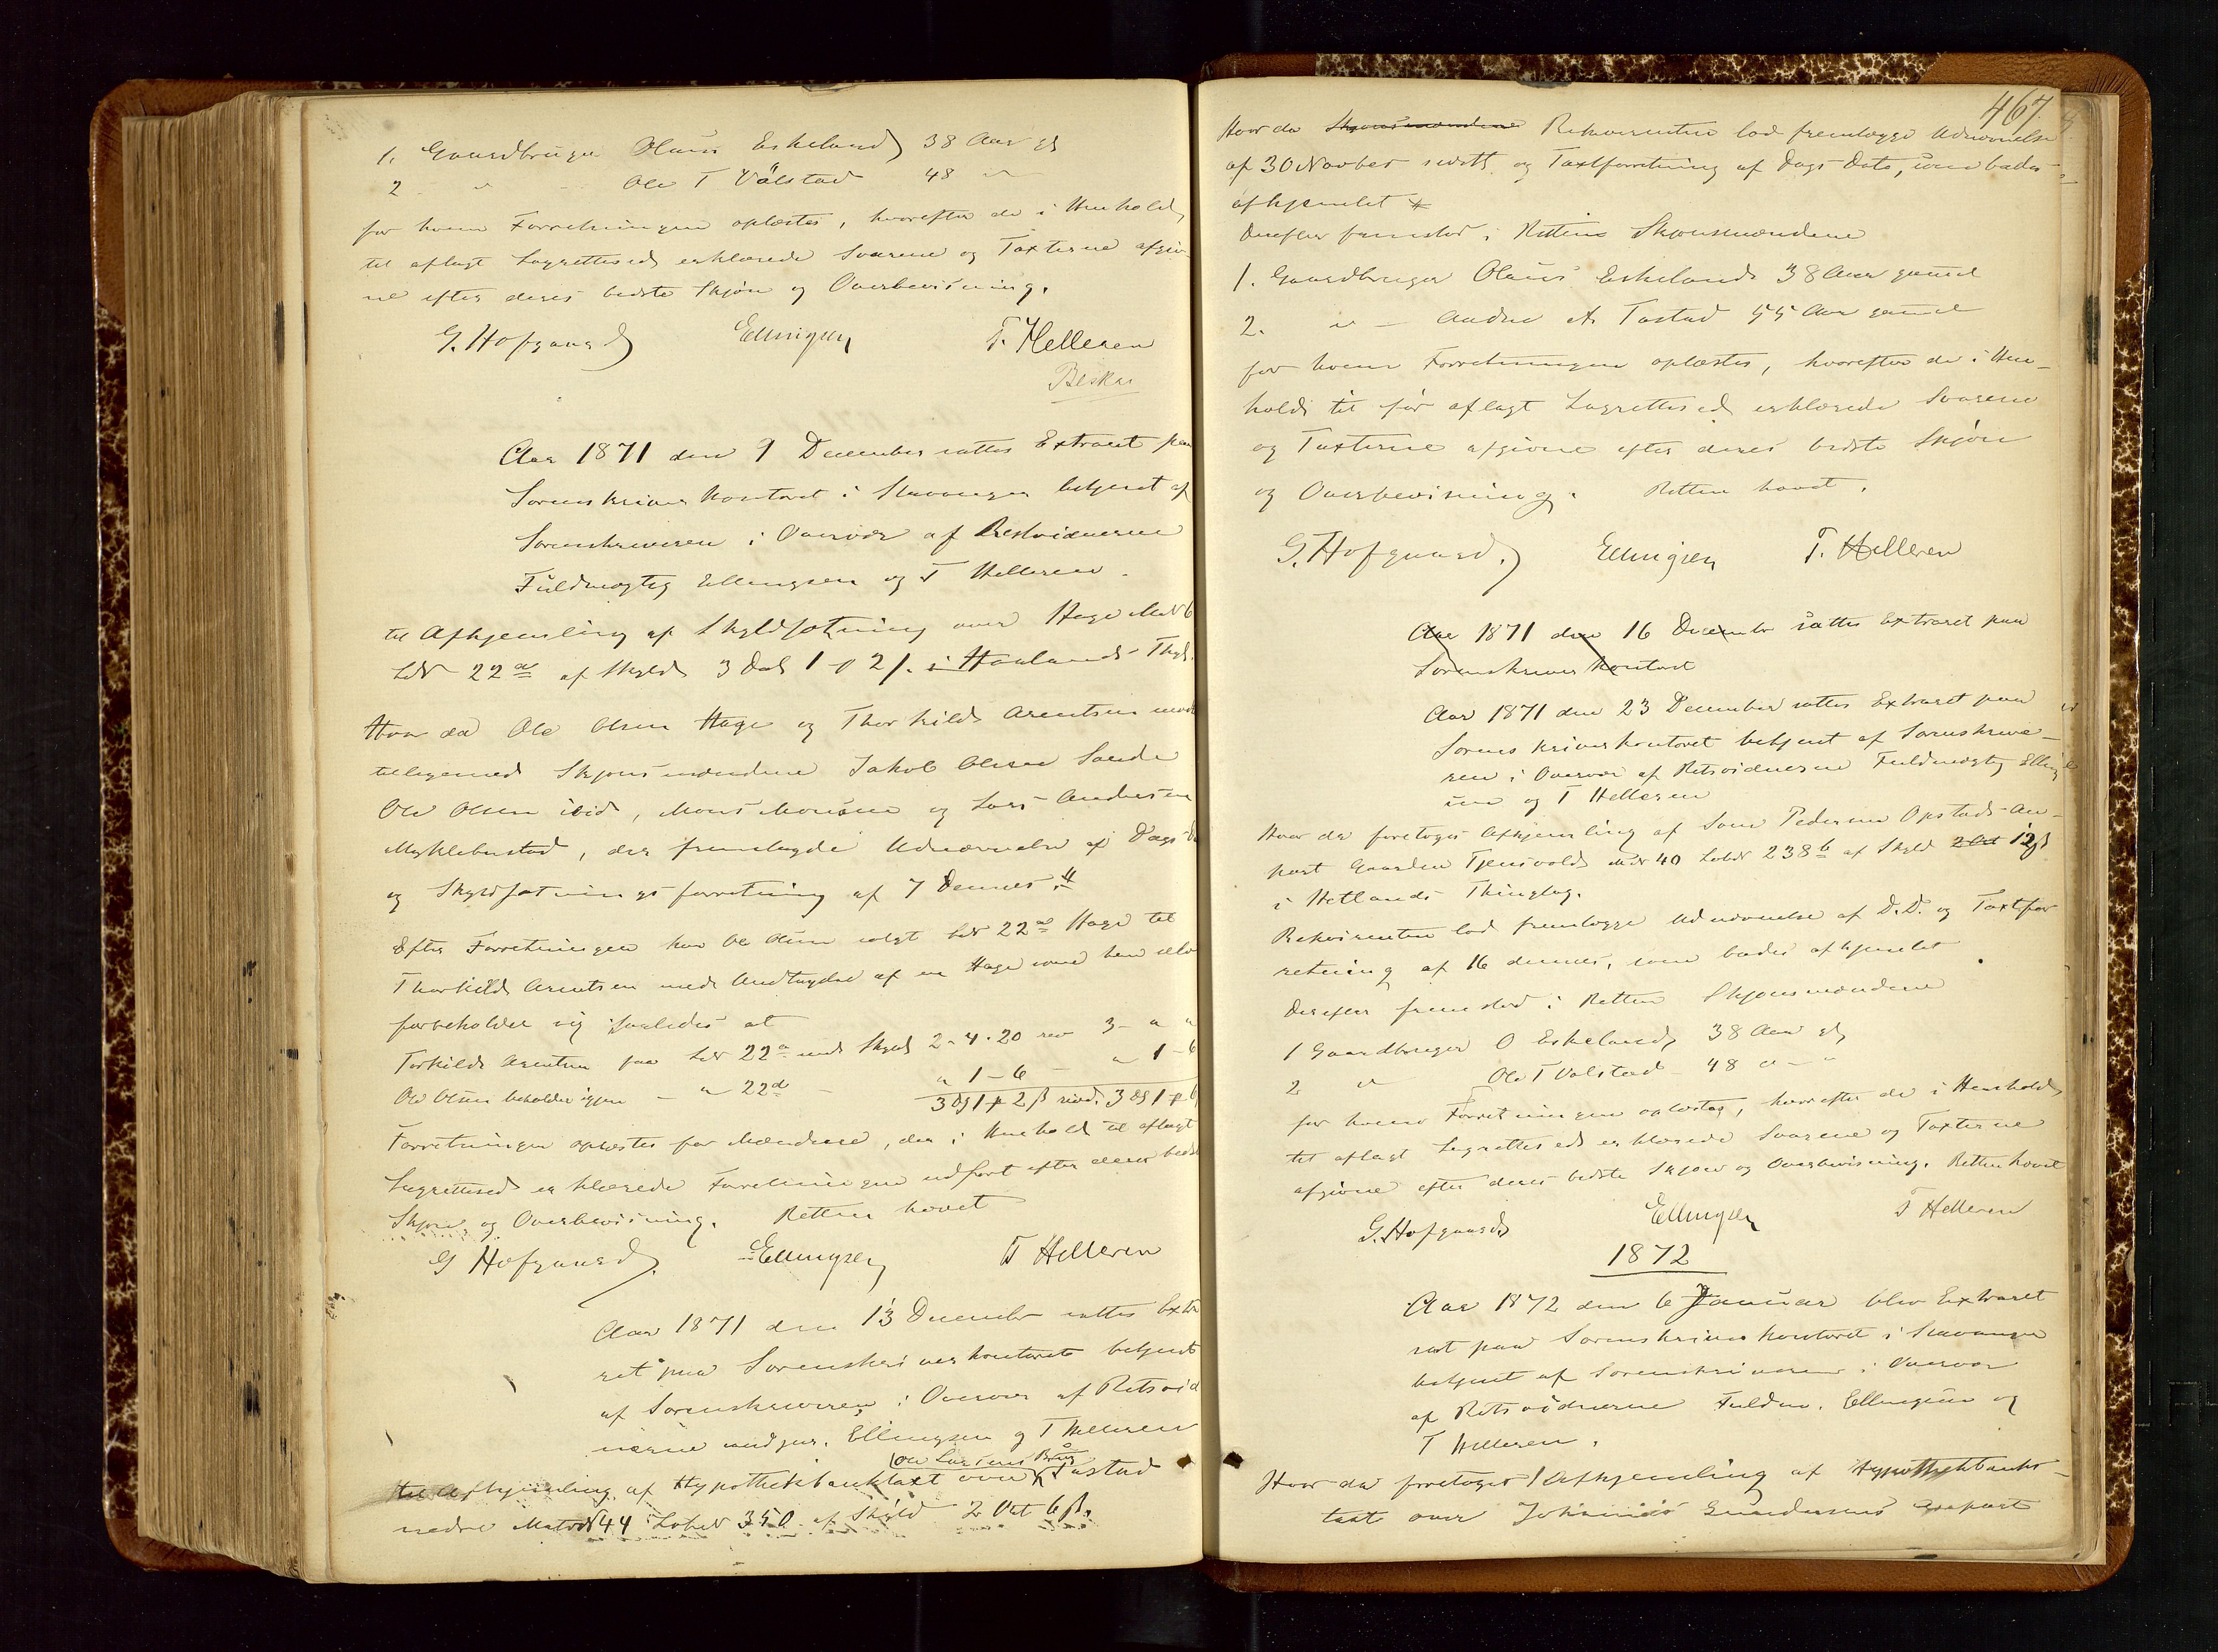 1. Gaardbruger Olaus Eskeland 38 Aar gl
2 " - Ole T Vålstad 48 "
for hvem Forretningen oplæstes, hvorefter de i Henhold
til aflagt Lagrettesed erklærede Svarene og Taxterne afgiv-
ne efter deres bedste Skjøn og Overbevisning.
G. Hofgaard Ellingsen T. Helleren
Beskar
Aar 1871 den 9 December sattes Extraret paa
Sorenskriverkontoret i Stavanger betjent af
Sorenskriveren i Overvær af Retsvidnerne
Fuldmægtig Ellingsen og T Helleren.
til Afhjemling af Skyldsætning over Hage MNr 6
LNr 22a af Skyld 3 Dal 1 ort 2 s. i Haalands Thgl.
Hvor da Ole Olsen Hage og Thorkild Arentsen mødte
tilligemed Skjønsmændene Jakob Olsen Sande
Ole Olsen ibid, Mons Monsen og Lars Andersen
Myklebustad, der fremlagde Udnævnelse af Dags D
og Skyldsætningsforretning af 7 Dennes. #
Efter Forretningen har Ole Olsen solgt LNr 22a Hage til
Thorkild Arentsen med Undtagelse af en Hage som han selv
forbeholder sig saaledes at
Torkild Arentsen faa LNr 22a med Skyld 2-4-20 rev 3 - " "
Ole Olsen beholder igjen - " 22d - " 1-6 - " 1-6
3 D 1 ort 2 ß revid. 3 D 1 ort 6
Forretningen oplæstes for Mændene, der i Henhold til aflagt
Lagrettesed erklærede Forretningen udført efter deres bedste
Skjøn og Overbevisning. Retten hævet
G Hofgaard Ellingsen T Helleren
Aar 1871 den 13 December sattes Extra
ret paa Sorenskriverkontoret betjent
af Sorenskriveren i Overvær af Retsvid
nerne undgur. Ellingsen og T Helleren
Ole Larsens Brug
til Afhjemling af Hypothekbanktaxt over Tastad
nedre MatrNr 44 LøbeNr 350 af Skyld 2 Ort 6 ß.
467
Hvor da Skjønsmændene Rekvirenten lod fremlægge Udnævnelse
af 30 Novber sidstl. og Taxtforretning af Dags Dato, som bades
afhjemlet #
Derefter fremstod i Retten Skjønsmændene
1. Gaardbruger Olaus Eskeland 38 Aar gammel
2. " - Andre A. Tastad 55 Aar gammel
for hvem Forretningen oplæstes, hvorefter de i Hen-
hold til før aflagt Lagrettesed erklærede Svarene
og Taxterne afgivne efter deres bedste Skjøn
og Overbevisning. Retten hævet.
G. Hofgaard. Ellingsen T. Helleren
Aar 1871 den 16 December sattes Extraret paa
Sorenskriverkontoret
Aar 1871 den 23 December sattes Extraret paa
Sorenskriverkontoret betjent af Sorenskrive-
ren i Overvær af Retsvidnerne Fuldmægtig Elling
sen og T Helleren
Hvor da foretoges Afhjemling af Sven Pedersen Opstads An-
part Gaarden Tjensvold MNr 40 LøbeNr 238b af Skyld 2 Ort 12 ß
i Hetlands Thinglag.
Rekvirenten lod fremlægge Udnævnelse af D.D. og Taxtfor
retning af 16 dennes, som bades afhjemlet
Derefter fremstod i Retten Skjønsmændene
1 Gaardbruger O Eskeland, 38 Aar gl,
2 " Ole T Valstad 48 " - "
for hvem Forretningen oplæstes, hvorefter de i Henhold
til aflagt Lagrettesed erklærede Svarene og Taxterne
afgivne efter deres bedste Skjøn og Overbevisning. Retten hævet
G. Hofgaard Ellingsen T Helleren
1872
Aar 1872 den 6 Januar blev Extraret
sat paa Sorenskriverkontoret i Stavanger
betjent af Sorenskriveren i Overvær
af Retsvidnerne Fuldm. Ellingsen og
T Helleren.
Hvor da foretoges Afhjemling af Hypothekbanks-
taxt over Johannes Gundersens Anpart